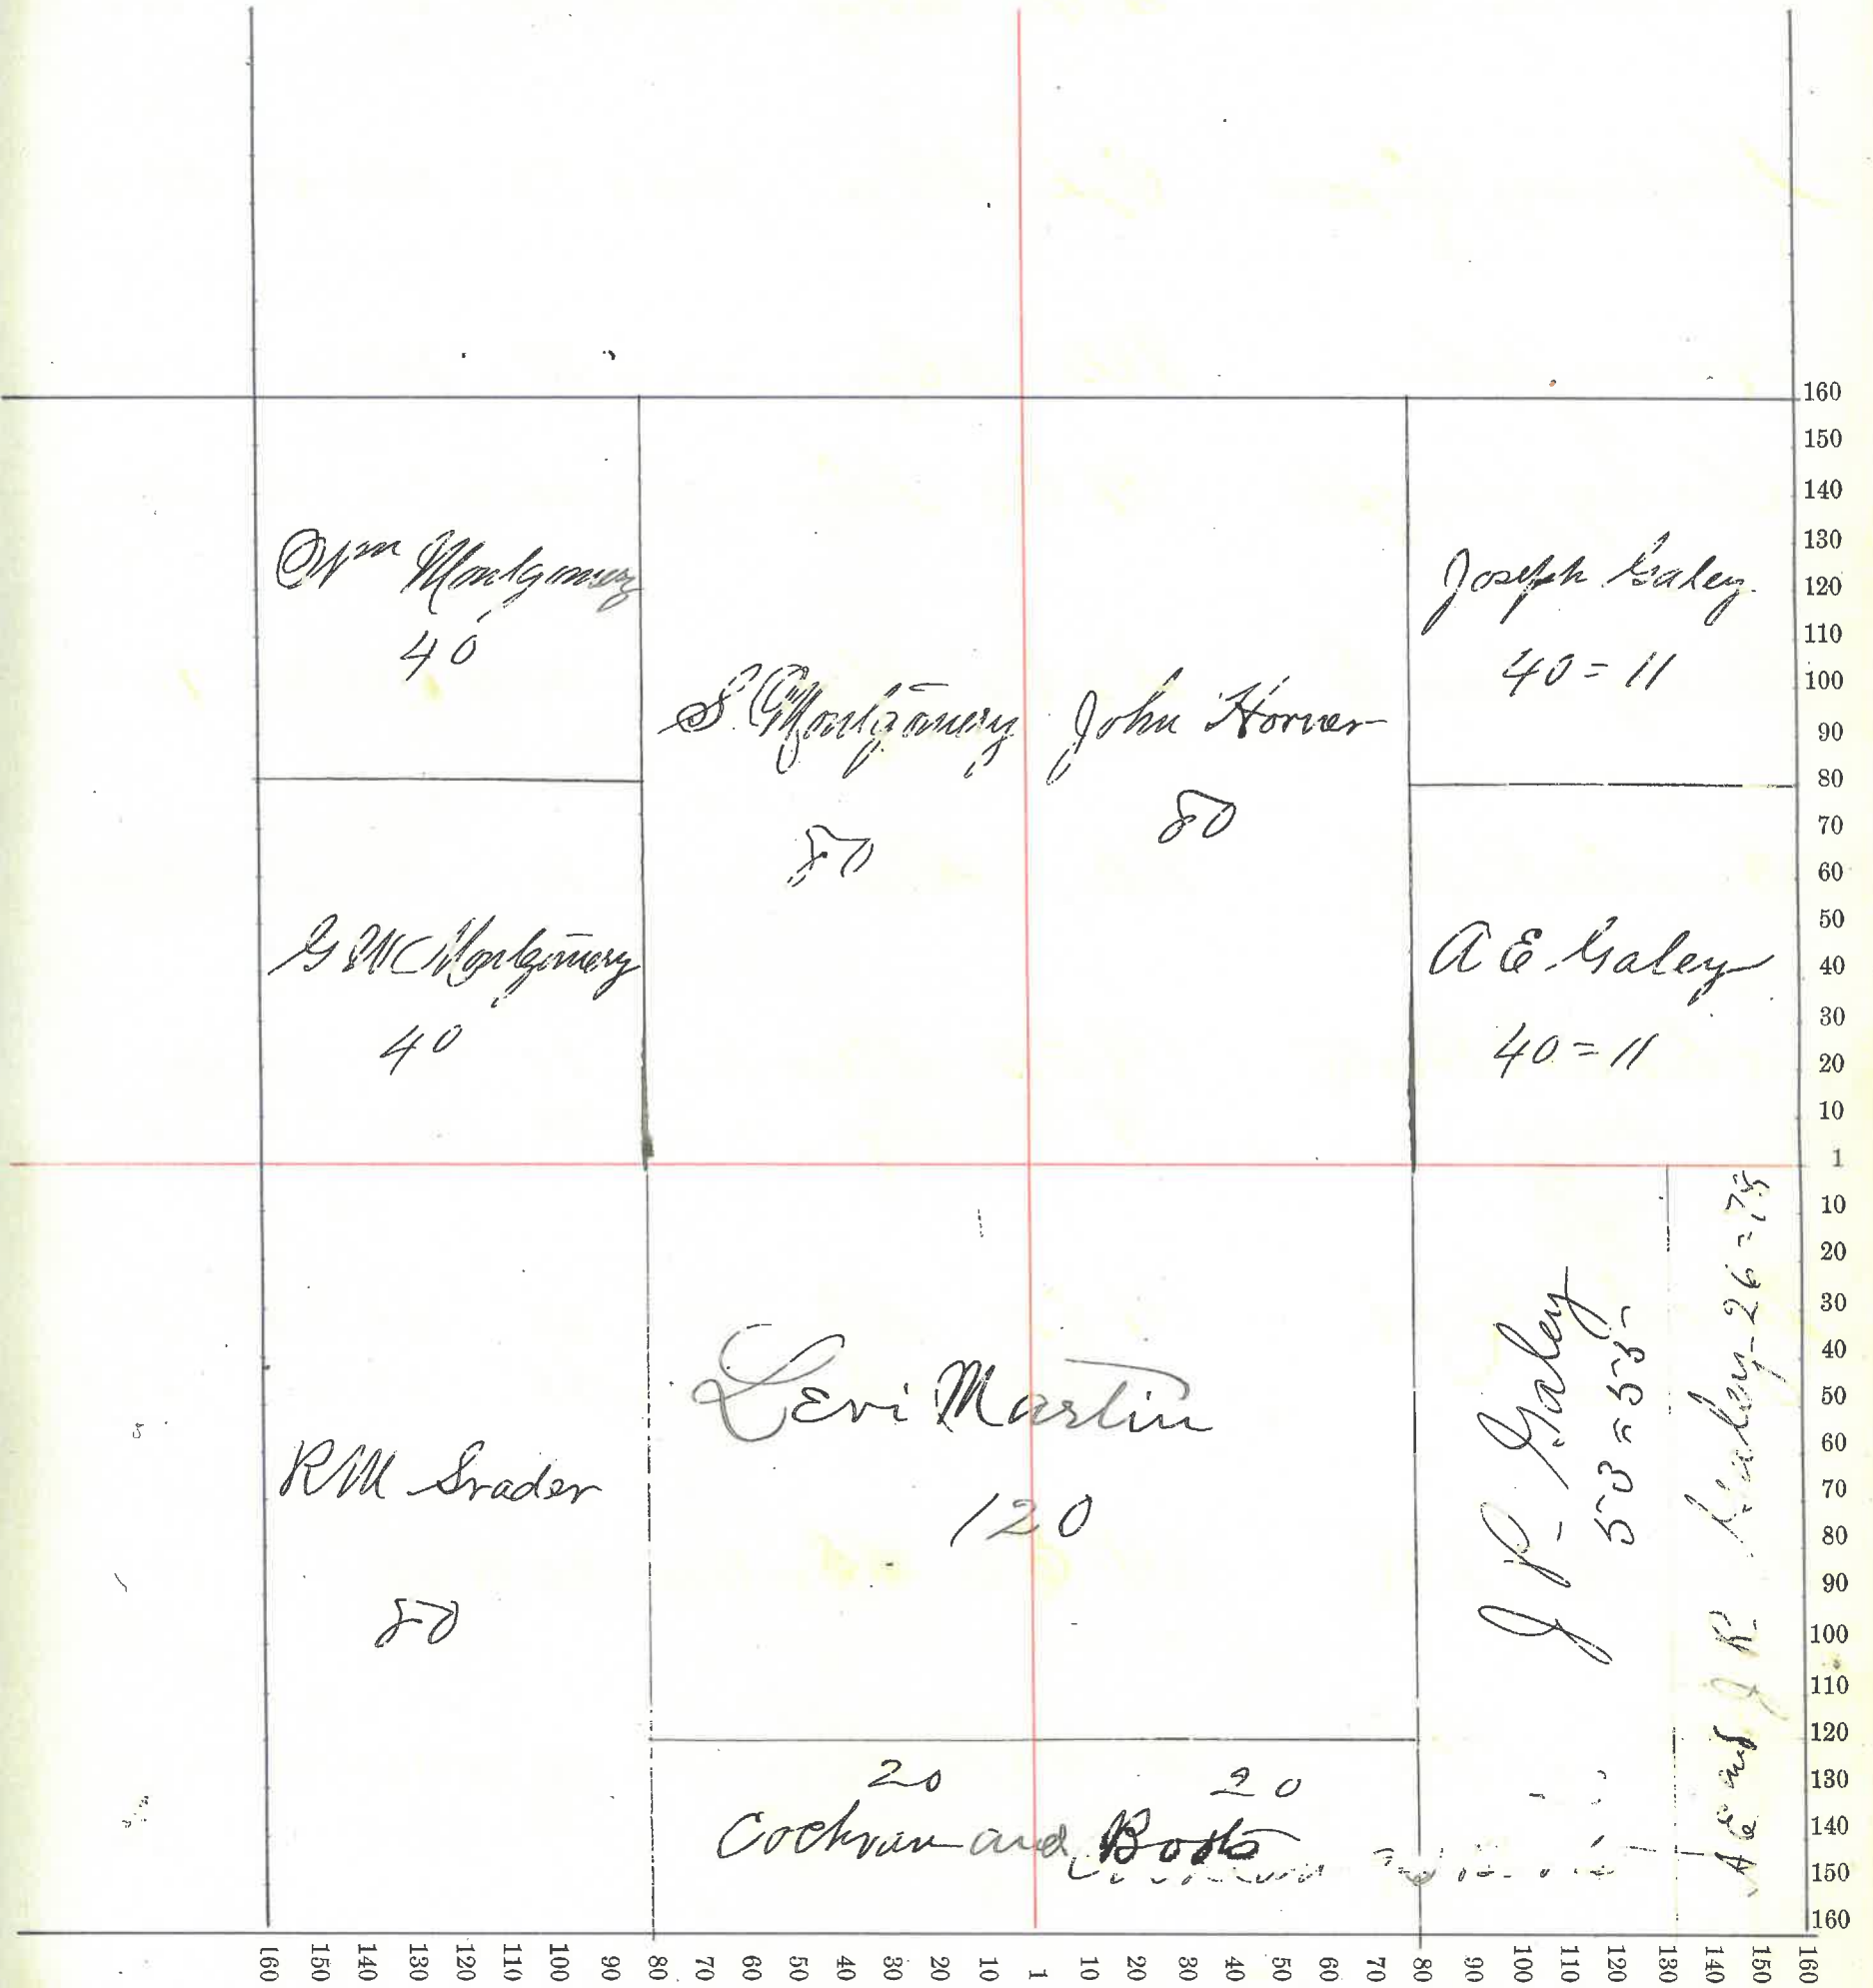 Wm Montgomery
40
S. Montgomery
80
John Horner
80
Joseph Galey
40=11
G W Montgomery
40
A E Galey
40=11
R M Srader
80
Levi Martin
120
J P Galey
53=55
A E and J R Galey 26=75
20 20
Cochran and Boots
160
150
140
130
120
110
100
90
80
70
60
50
40
30
20
10
1
10
20
30
40
50
60
70
80
90
100
110
120
130
140
150
160
160 150 140 130 120 110 100 90 80 70 60 50 40 30 20 10 1 10 20 30 40 50 60 70 80 90 100 110 120 130 140 150 160